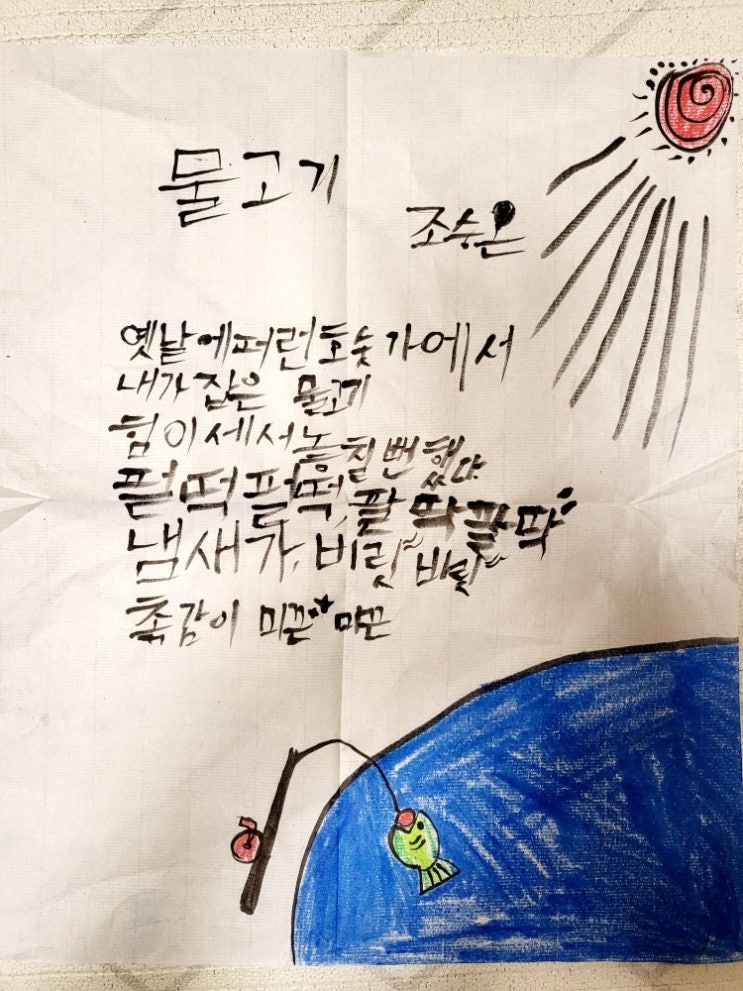 물고기
조승온
옛날에 퍼런 호숫가에서
내가 잡은 물고기
힘이 세서 놓칠 뻔 했다
펄떡펄떡, 팔딱팔딱
냄새가, 비릿 비릿
촉감이 미끈 미끈